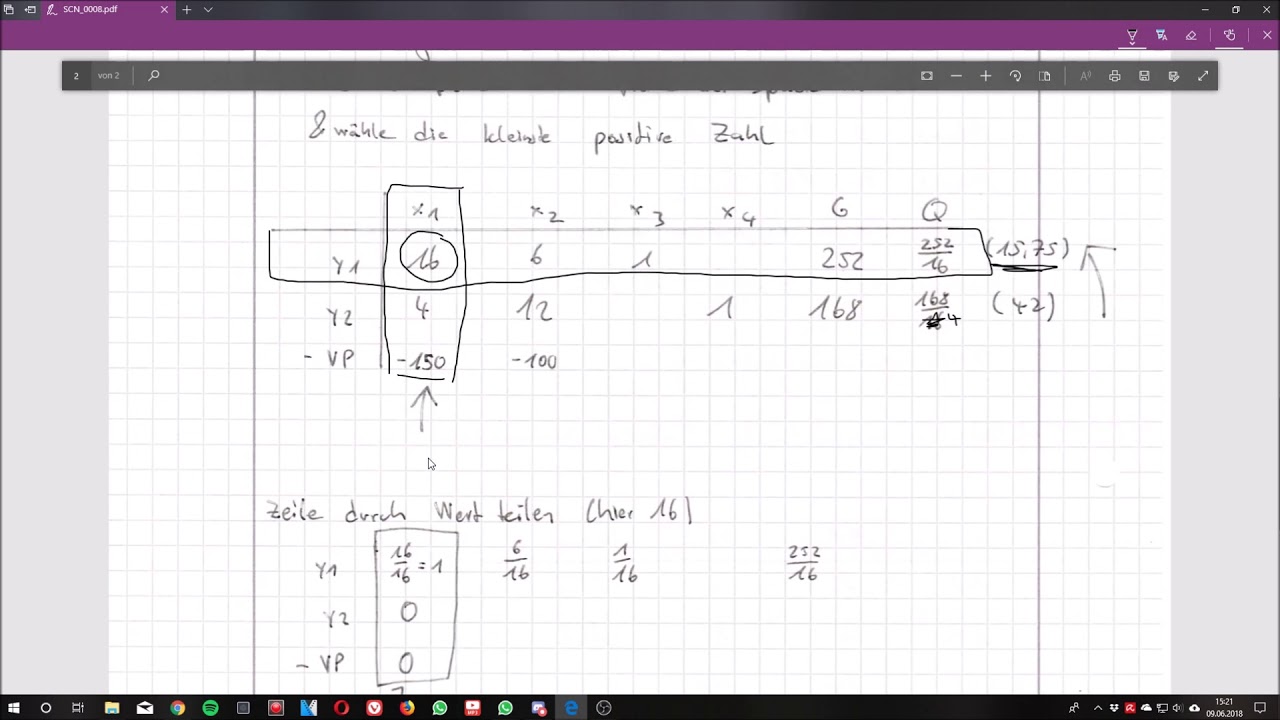 SCN_0008.pdf
2 von 2
& wähle die kleinste positive Zahl
x1 x2 x3 x4 G Q
Y1 16 6 1 252 252/16 (15,75)
Y2 4 12 1 168 168/4 (42)
- VP -150 -100
Zeile durch Wert teilen (hier 16)
Y1 16/16 = 1 6/16 1/16 252/16
Y2 0
- VP 0
15:21
09.06.2018